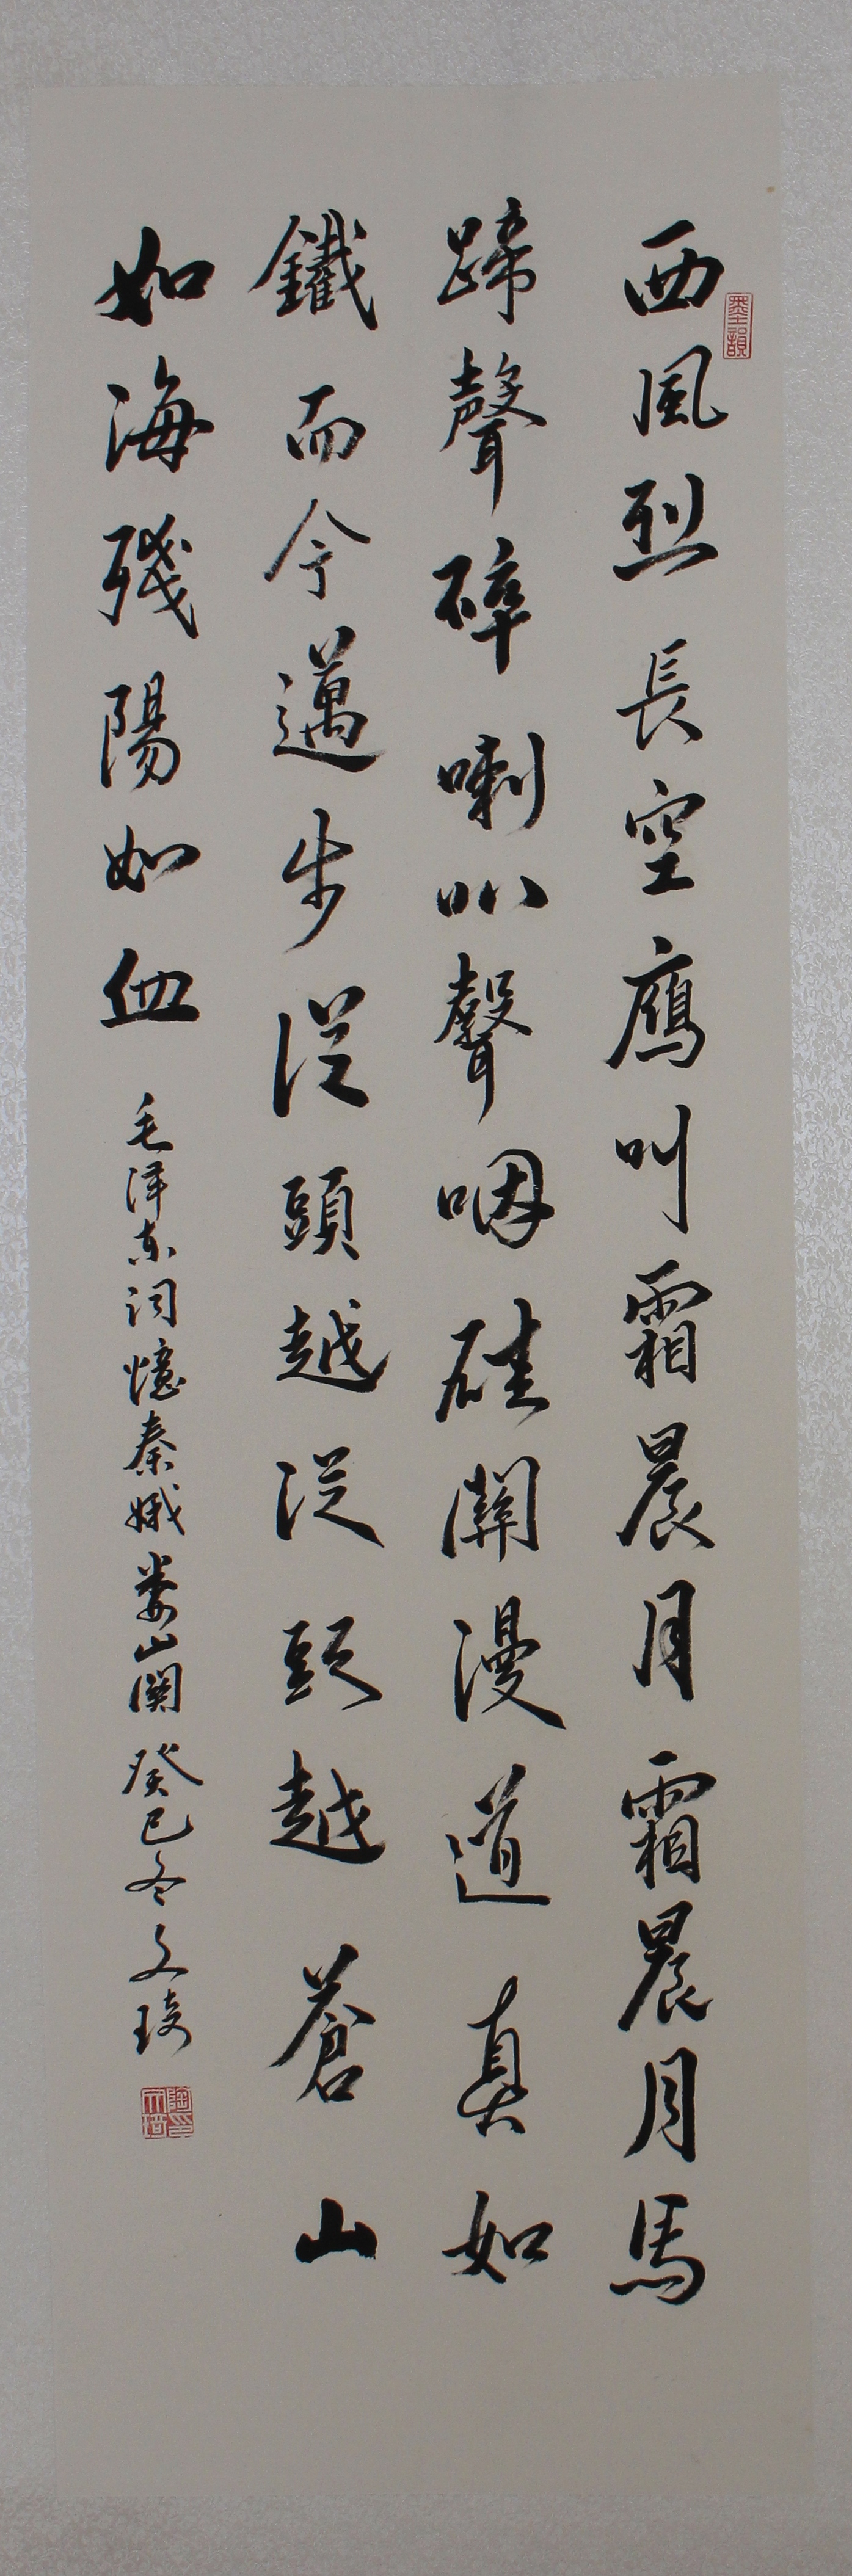 西風烈長空鴈叫霜晨月霜晨月馬
蹄聲碎喇叭聲咽硅關漫道真如
鐵而今邁步從頭越從頭越蒼山
如海殘陽如血
毛泽东词憶秦娥娄山關癸巳冬文琦
墨韻